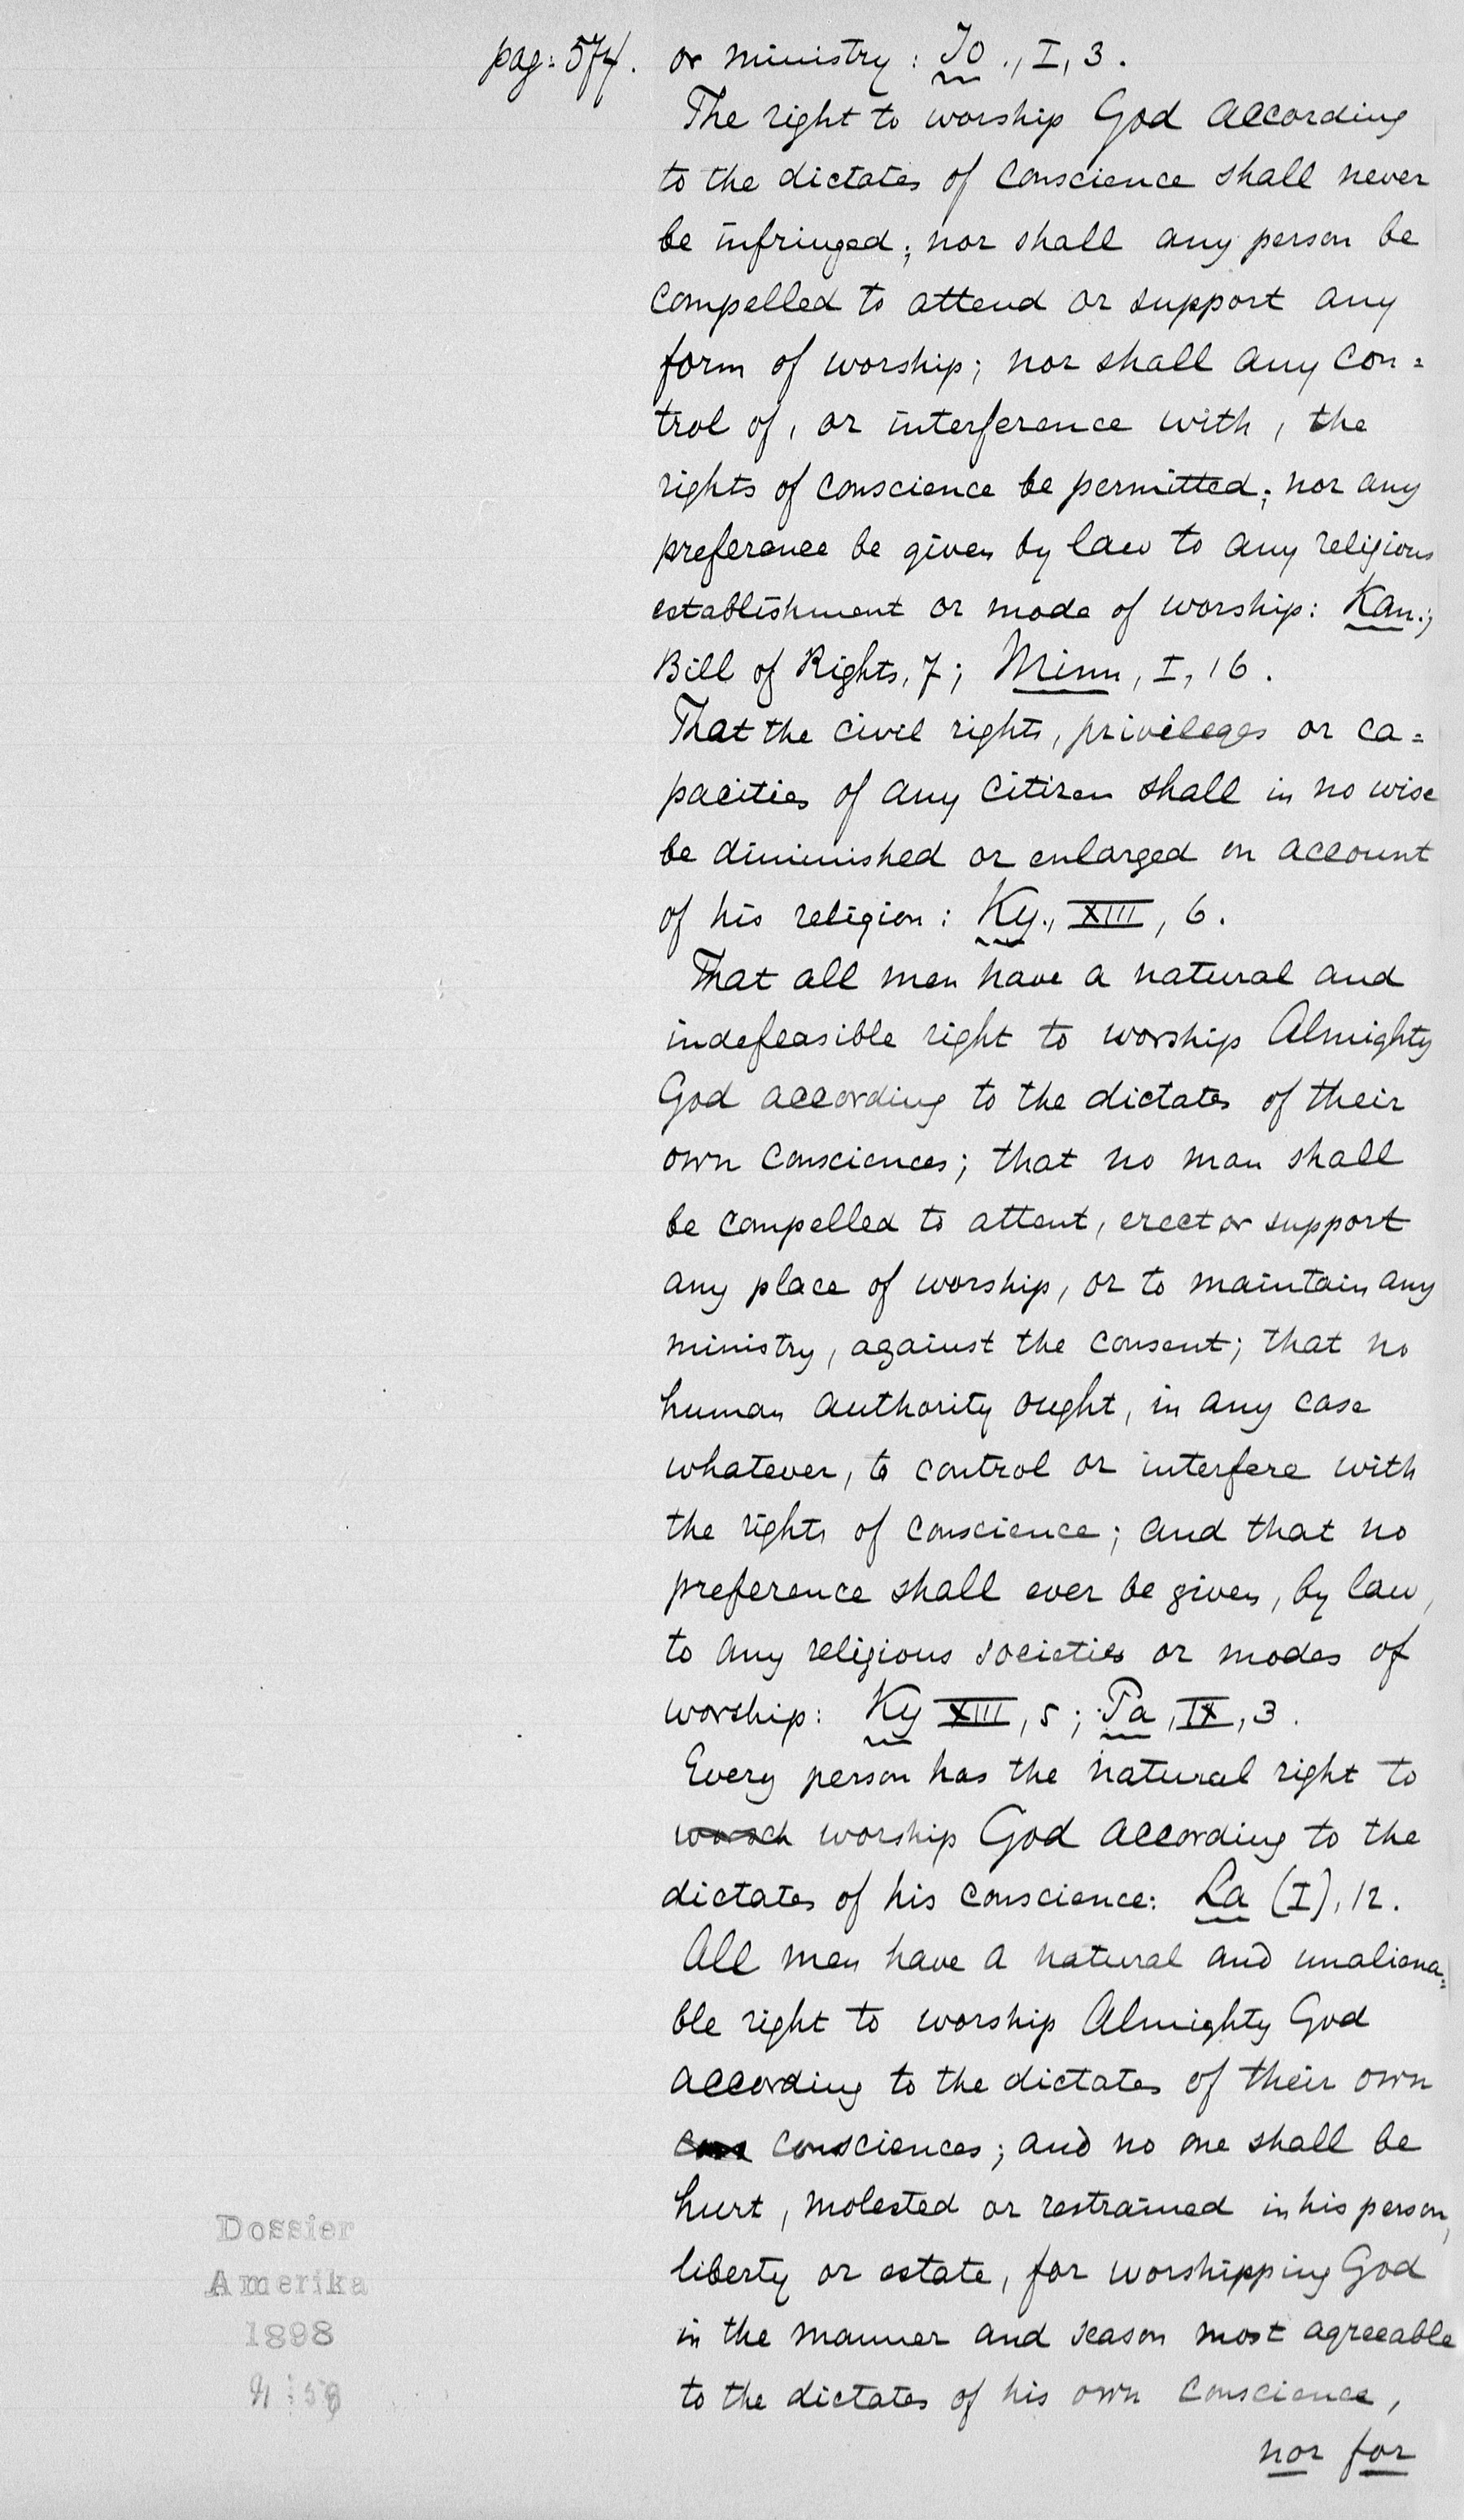 pag: 574. or ministry: Io., I, 3.
The right to worship God according
to the dictates of conscience shall never
be infringed; nor shall any person be
compelled to attend or support any
form of worship; nor shall any con=
trol of, or interference with, the
rights of conscience be permitted; nor any
preference be given by law to any religious
establishment or mode of worship: Kan.;
Bill of Rights, 7; Minn, I, 16.
That the civil rights, privileges or ca=
pacities of any citizen shall in no wise
be diminished or enlarged on account
of his religion: Ky., XIII, 6.
That all men have a natural and
indefeasible right to worship Almighty
God according to the dictates of their
own consciences; that no man shall
be compelled to attent, erect or support
any place of worship, or to maintain any
ministry, against the consent; that no
human authority ought, in any case
whatever, to control or interfere with
the rights of conscience; and that no
preference shall ever be given, by law,
to any religious societies or modes of
worship: Ky XIII, 5; Pa, IX, 3.
Every person has the natural right to
worsch worship God according to the
dictates of his conscience: La (I), 12.
All men have a natural and unaliena=
ble right to worship Almighty God
according to the dictates of their own
consciences; and no one shall be
hurt, molested or restrained in his person,
liberty or estate, for worshipping God
in the manner and season most agreeable
to the dictates of his own conscience,
nor for
Dossier
Amerika
1898